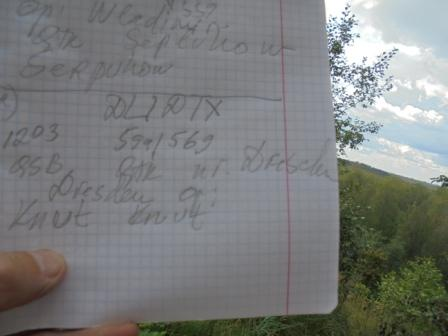 op: Wladi
qth Serpuhow
Serpuhow
DL1DTX
1203 599/569
QSB qth nr. Dresden
Dresden op:
Knut Knut